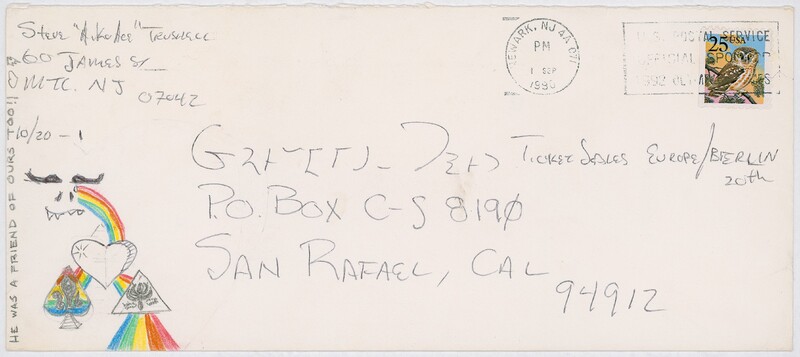 Steve "AikoAce" Trushell
60 James St
MTC. NJ
07042
10/20 - 1
HE WAS A FRIEND OF OURS TOO!!
NEWARK, NJ 4A 071
PM
1 SEP
1990
U.S. POSTAL SERVICE
OFFICIAL SPONSOR
1992 OLYMPIC GAMES
25 USA
Grateful Dead Ticket Sales Europe/BERLIN
20th
P.O. Box C-S 8190
SAN RAFAEL, CAL
94912